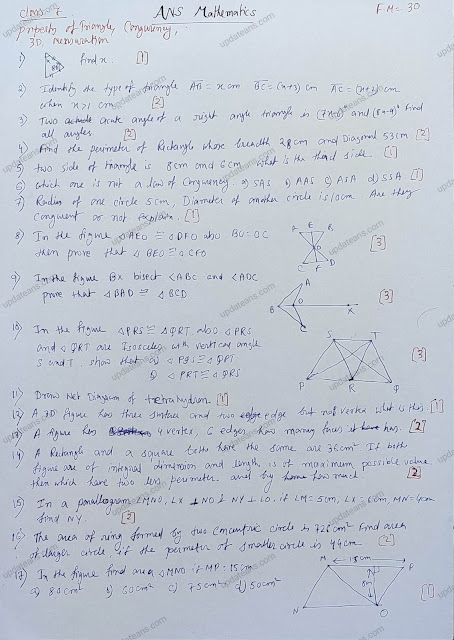 class 7 ANS Mathematics FM = 30
property of Triangle, Congruency,
3D, mensuration
1) find x. [1]
2) Identify the type of triangle AB = x cm BC = (x+3) cm AC = (x+2) cm
when x>1 cm. [2]
3) Two acute angle of a right angle triangle is and find
all angles. [2]
4) Find the perimeter of Rectangle whose breadth 28cm and Diagonal 53cm [2]
5) two side of triangle is 8cm and 6cm what is the third side. [1]
6) which one is not a law of Congruency. a) SAS b) AAS c) ASA d) SSA [1]
7) Radius of one circle 5cm, Diameter of another circle is 10cm. Are they
Congruent or not explain. [1]
8) In the figure △AEO ≅ △DFO also BO = OC
then prove that △BEO ≅ △CFO [3]
A E B
O
C F D
9) In the figure BX bisect ∠ABC and ∠ADC
prove that △BAD ≅ △BCD [3]
A
B X
C
10) In the figure △PRS ≅ △QRT also △PRS
and △QRT are Isosceles with vertical angle
S and T. show that a) △PQS ≅ △QPT
b) △PRT ≅ △QRS [3]
S T
P R Q
11) Draw Net Diagram of tetrahydron. [1]
12) A 3D figure has three surface and two edge but not vertex what is this [1]
13) A figure has 4 vertex, 6 edges how many faces it has. [2]
14) A Rectangle and a square both have the same are 36cm² If both
figure are of integral dimension and length is of maximum possible value
then which have two less perimeter. and by how much [2]
15) In a parallogram LMNO, LX ⊥ NO & NY ⊥ LO, if LM = 5cm, LX = 6cm, MN = 4cm
find NY. [2]
16) The area of ring formed by two concentric circle is 726cm² Find area
of larger circle if the perimeter of smaller circle is 44cm. [2]
17) In the figure find area △MNO if MP = 15cm
a) 80cm² b) 60cm² c) 75cm² d) 50cm² [1]
M 15cm P
N O
updateans.com